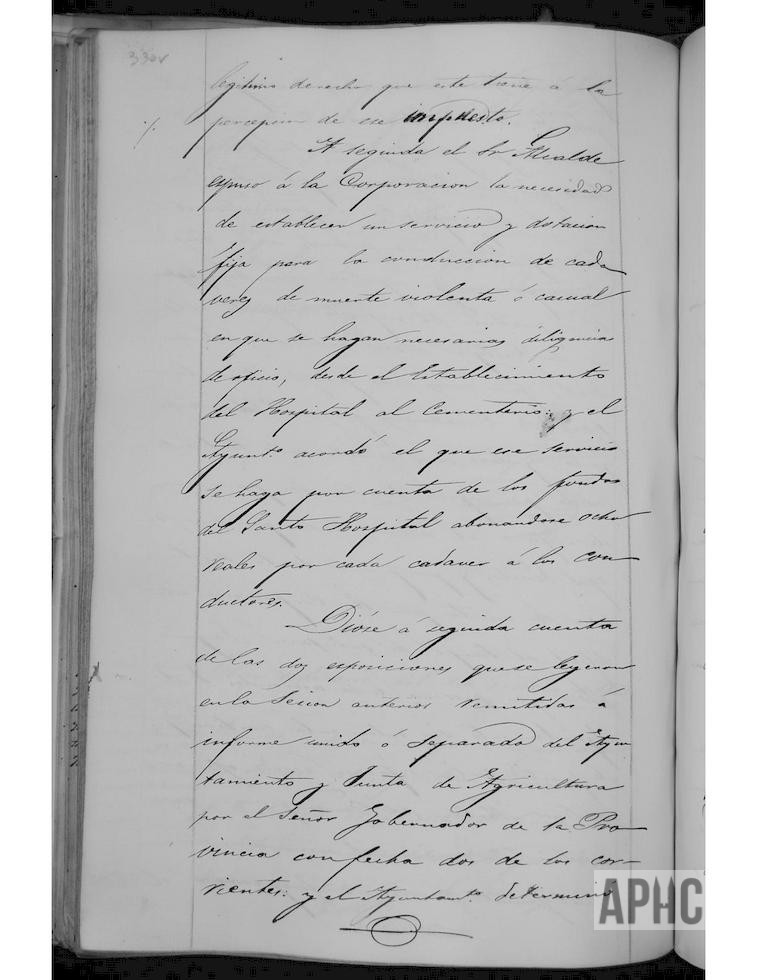 330v
legitimo derecho que este tiene á la
percepcion de ese impuesto.
A seguida el Sr Alcalde
espuso á la Corporacion la necesidad
de establecer un servicio y dotacion
fija para la conduccion de cada
veres de muerte violenta ó casual
en que se hagan necesarias diligencias
de oficio, desde el Establecimiento
del Hospital al Cementerio: y el
Ayunt.º acordó el que ese servicio
se haga por cuenta de los fondos
del Santo Hospital abonandose ocho
reales por cada cadaver á los con-
ductores.
Dióse á seguida cuenta
de las dos esposiciones que se leyeron
en la Sesion anterior remitidas á
informe unido ó separado del Ayun
tamiento y Junta de Agricultura
por el Señor Gobernador de la Pro-
vincia con fecha dos de los cor-
rientes: y el Ayuntam.º determinó
APHC